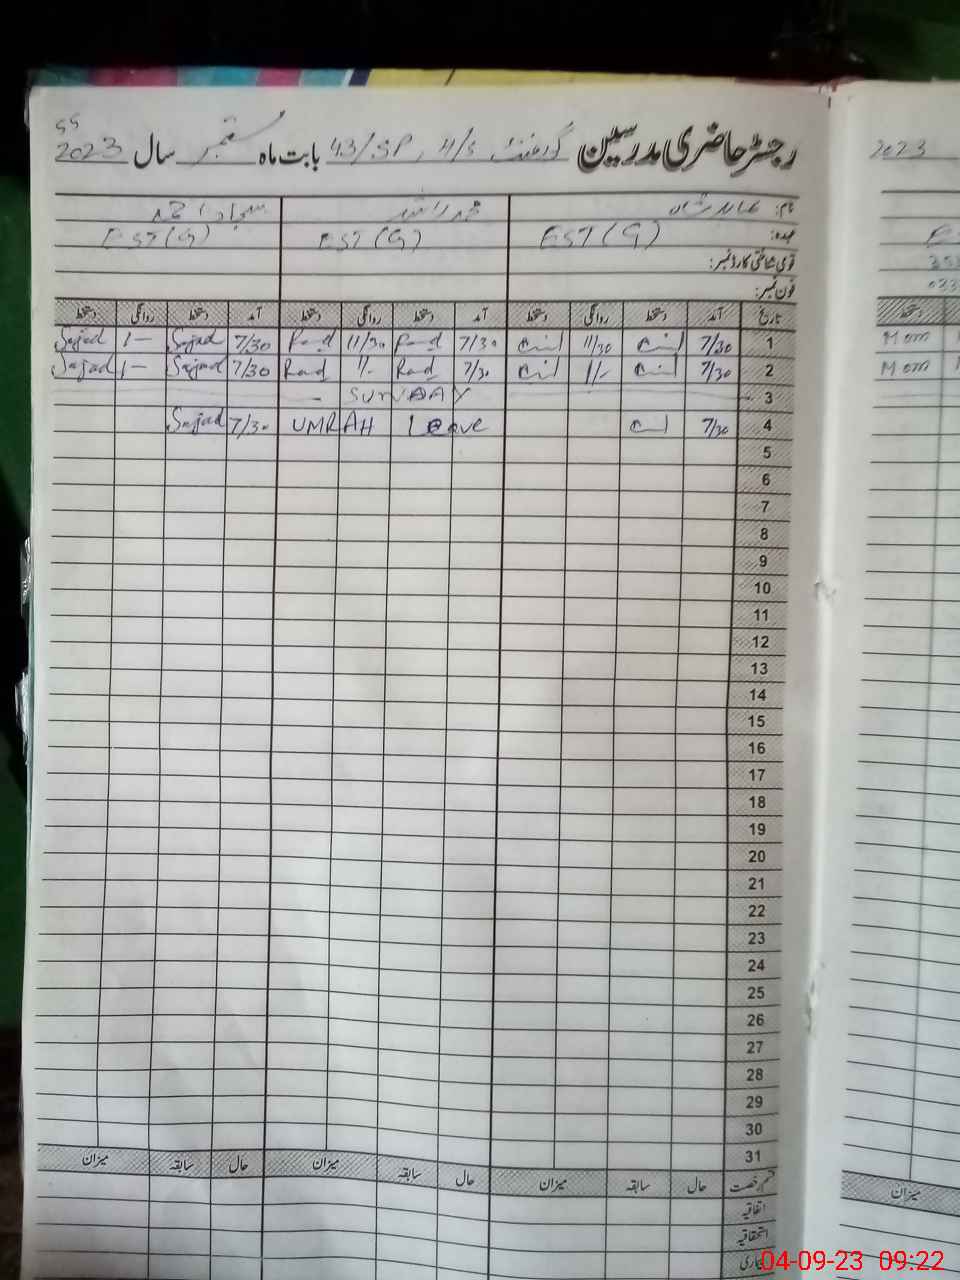 رجسٹر حاضری مدرسین گورنمنٹ 43/SP بابت ماہ ستمبر سال 2023
نام: عابد شاہ محمد راشد سجاد احمد
عہدہ: EST (G) EST (G) EST (G)
قومی شناختی کارڈ نمبر:
فون نمبر:
تاریخ آمد دستخط روانگی دستخط آمد دستخط روانگی دستخط آمد دستخط روانگی دستخط
1 7/30 11/30 7/30 11/30 7/30 Sajad 1- Sajad
2 7/30 1/- 7/30 1/- 7/30 Sajad 1- Sajad
3 SUNDAY
4 7/30 UMRAH Leave 7/30 Sajad
5
6
7
8
9
10
11
12
13
14
15
16
17
18
19
20
21
22
23
24
25
26
27
28
29
30
31
قسم رخصت حال سابقہ میزان حال سابقہ میزان حال سابقہ میزان
اتفاقیہ
استحقاقیہ
2023
دستخط
Mom
Mom
میزان
04-09-23 09:22